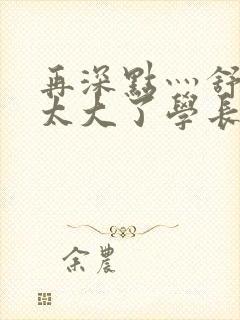 再深點灬舒
太大了學長
余農